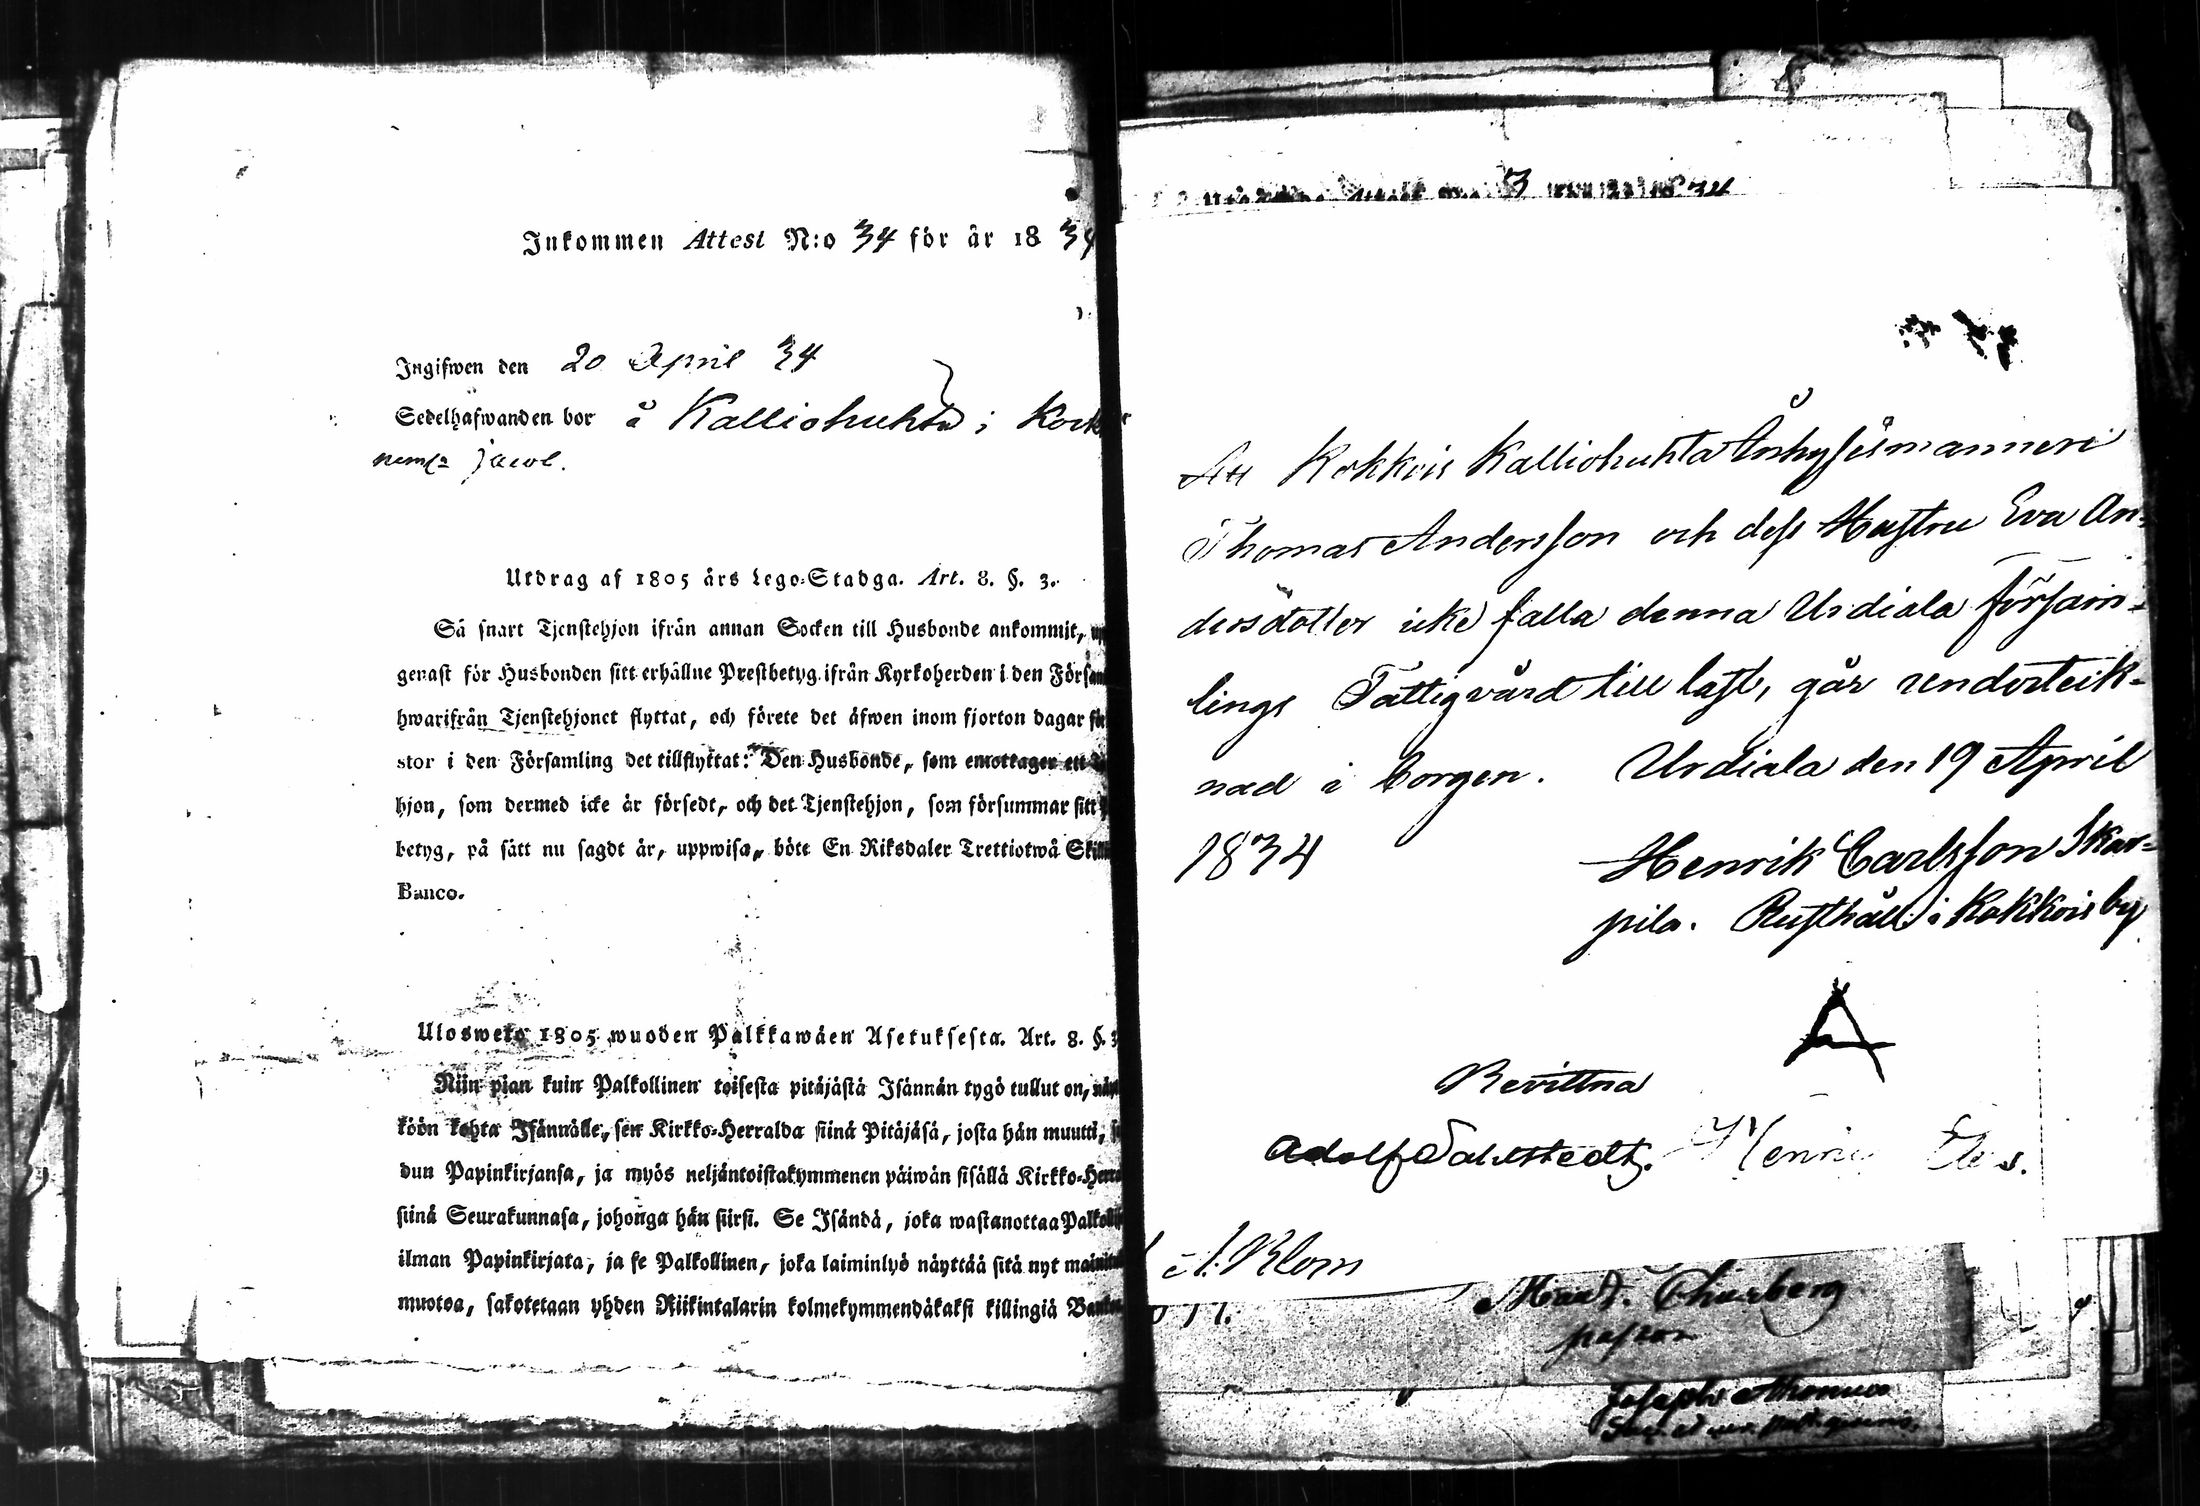 Inkommen Attest N:o 34 för år 18 34
Ingifwen den 20 April 34
Sedelhafwanden bor å Kalliohuhta i
Utdrag af 1805 års Lego-Stadga. Art. 8. §. 3.
Så snart Tjenstehjon ifrån annan Socken till Husbonde ankommit,
genast för Husbonden sitt erhållne Prestbetyg ifrån Kyrkoherden i den
hwarifrån Tjenstehjonet flyttat, och förete det äfwen inom fjorton dagar
stor i den Församling det tillflyttat: Den Husbonde, som emottager ett
hjon, som dermed icke är försedt, och det Tjenstehjon, som försummar sitt
betyg, på sätt nu sagdt är, uppwisa, böte En Riksdaler Trettiotwå
Banco.
Ulosweto 1805 wuoden Palkkawäen Asetuksesta. Art. 8. §. 3
Niin pian kuin Palkollinen toisesta pitäjästä Isännän tygö tullut on,
köön kohta Isännälle, sen Kirkko-Herralda siinä Pitäjäsä, josta hän muutti,
dun Papinkirjansa, ja myös neljäntoistakymmenen päiwän sisällä
siinä Seurakunnasa, johonga hän siirsi. Se Isändä, joka wastanottaa
ilman Papinkirjata, ja se Palkollinen, joka laiminlyö näyttää sitä nyt
muotoa, sakotetaan yhden Riikintalarin kolmekymmendäkaksi killingiä
Att Kokkois Kalliohuhta Inhysesmannen
Thomas Andersson och dess Hustru Eva An-
dersdotter icke falla denna Urdiala Försam-
lings Fattigvård till last, går underteck-
nad i borgen. Urdiala den 19 April
1834
Henrik Carlsson Skar-
pila. Rusthåll i Kokkois by
Bevittna
Adolf Dahlstedt. Henric
A. Blom
Thurberg
pastor